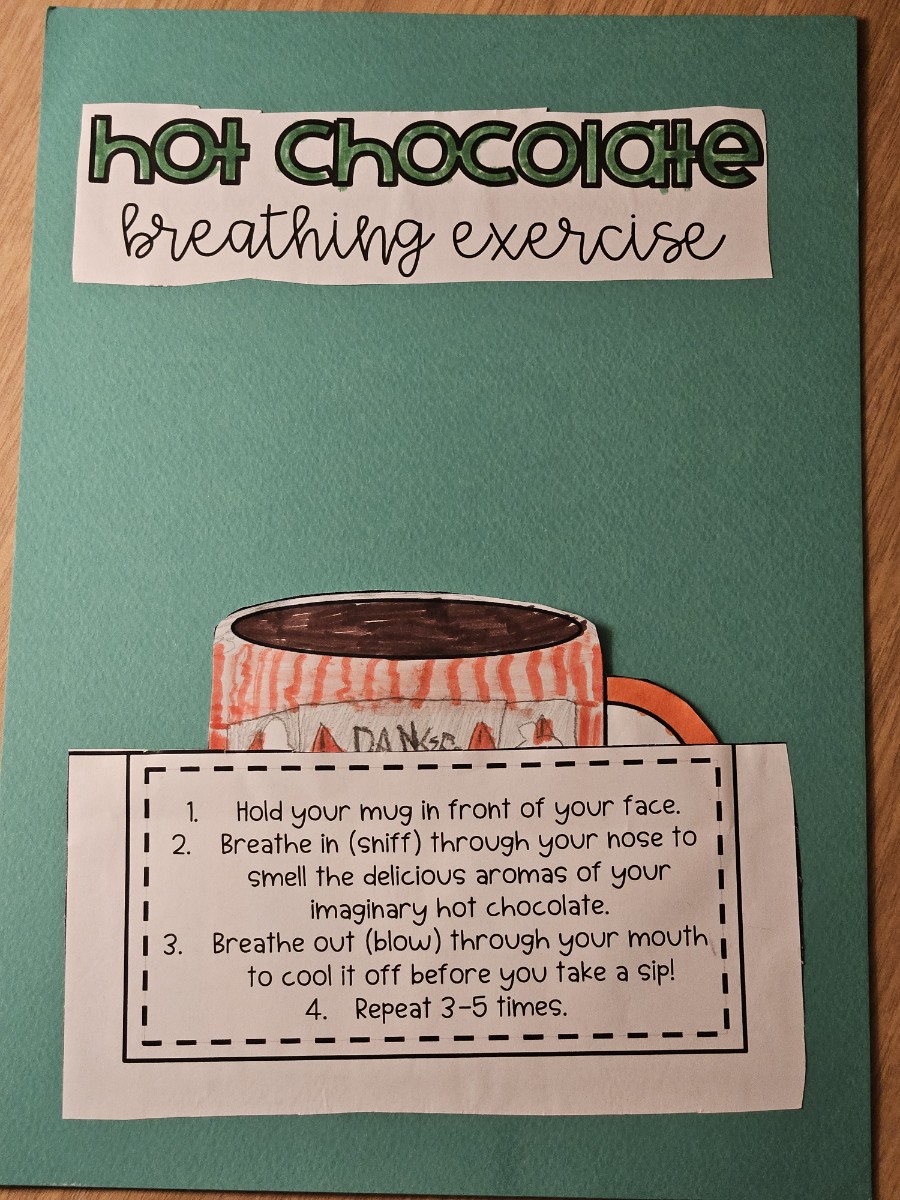 hot chocolate
breathing exercise
1. Hold your mug in front of your face.
2. Breathe in (sniff) through your nose to
smell the delicious aromas of your
imaginary hot chocolate.
3. Breathe out (blow) through your mouth
to cool it off before you take a sip!
4. Repeat 3-5 times.